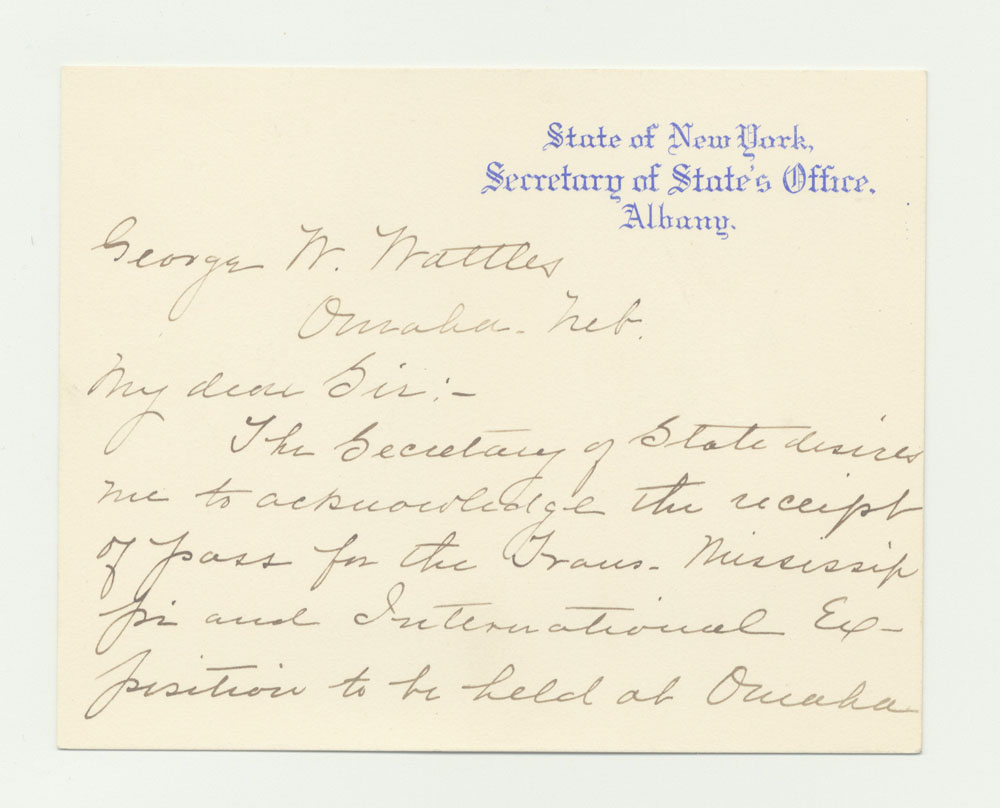 State of New York,
Secretary of State's Office.
Albany.
George W. Wattles
Omaha - Neb.
My dear Sir:-
The Secretary of State desires
me to acknowledge the receipt
of pass for the Trans- Mississip
pi and International Ex-
position to be held at Omaha